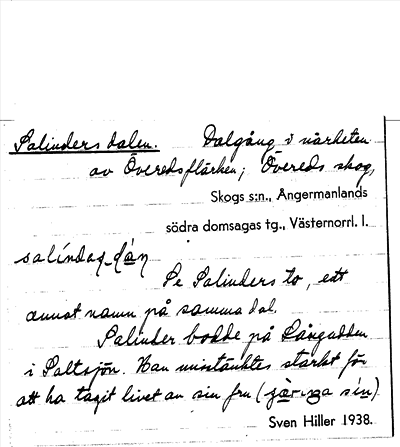 Salinders dalen. Dalgång i närheten
av Överedsflärken; Övereds skog,
Skogs s:n., Ångermanlands
södra domsagas tg., Västernorrl. l.
Se Salinders to, ett
annat namn på samma dal.
Salinder bodde på Långudden
i Saltsjön. Han misstänktes starkt för
att ha tagit livet av sin fru
Sven Hiller 1938.